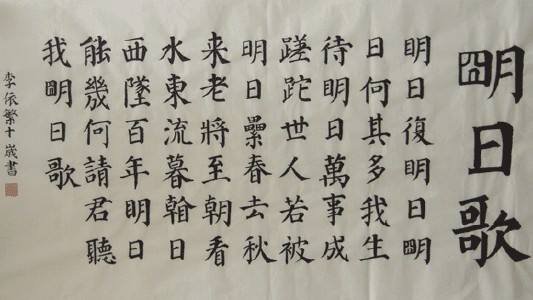 朙日歌
明日復明日朙
日何其多我生
待明日萬事成
蹉跎世人若被
明日纍春去秋
来老將至朝看
水東流暮翰日
西墜百年明日
能幾何請君聽
我朙日歌
李依繁十歲書